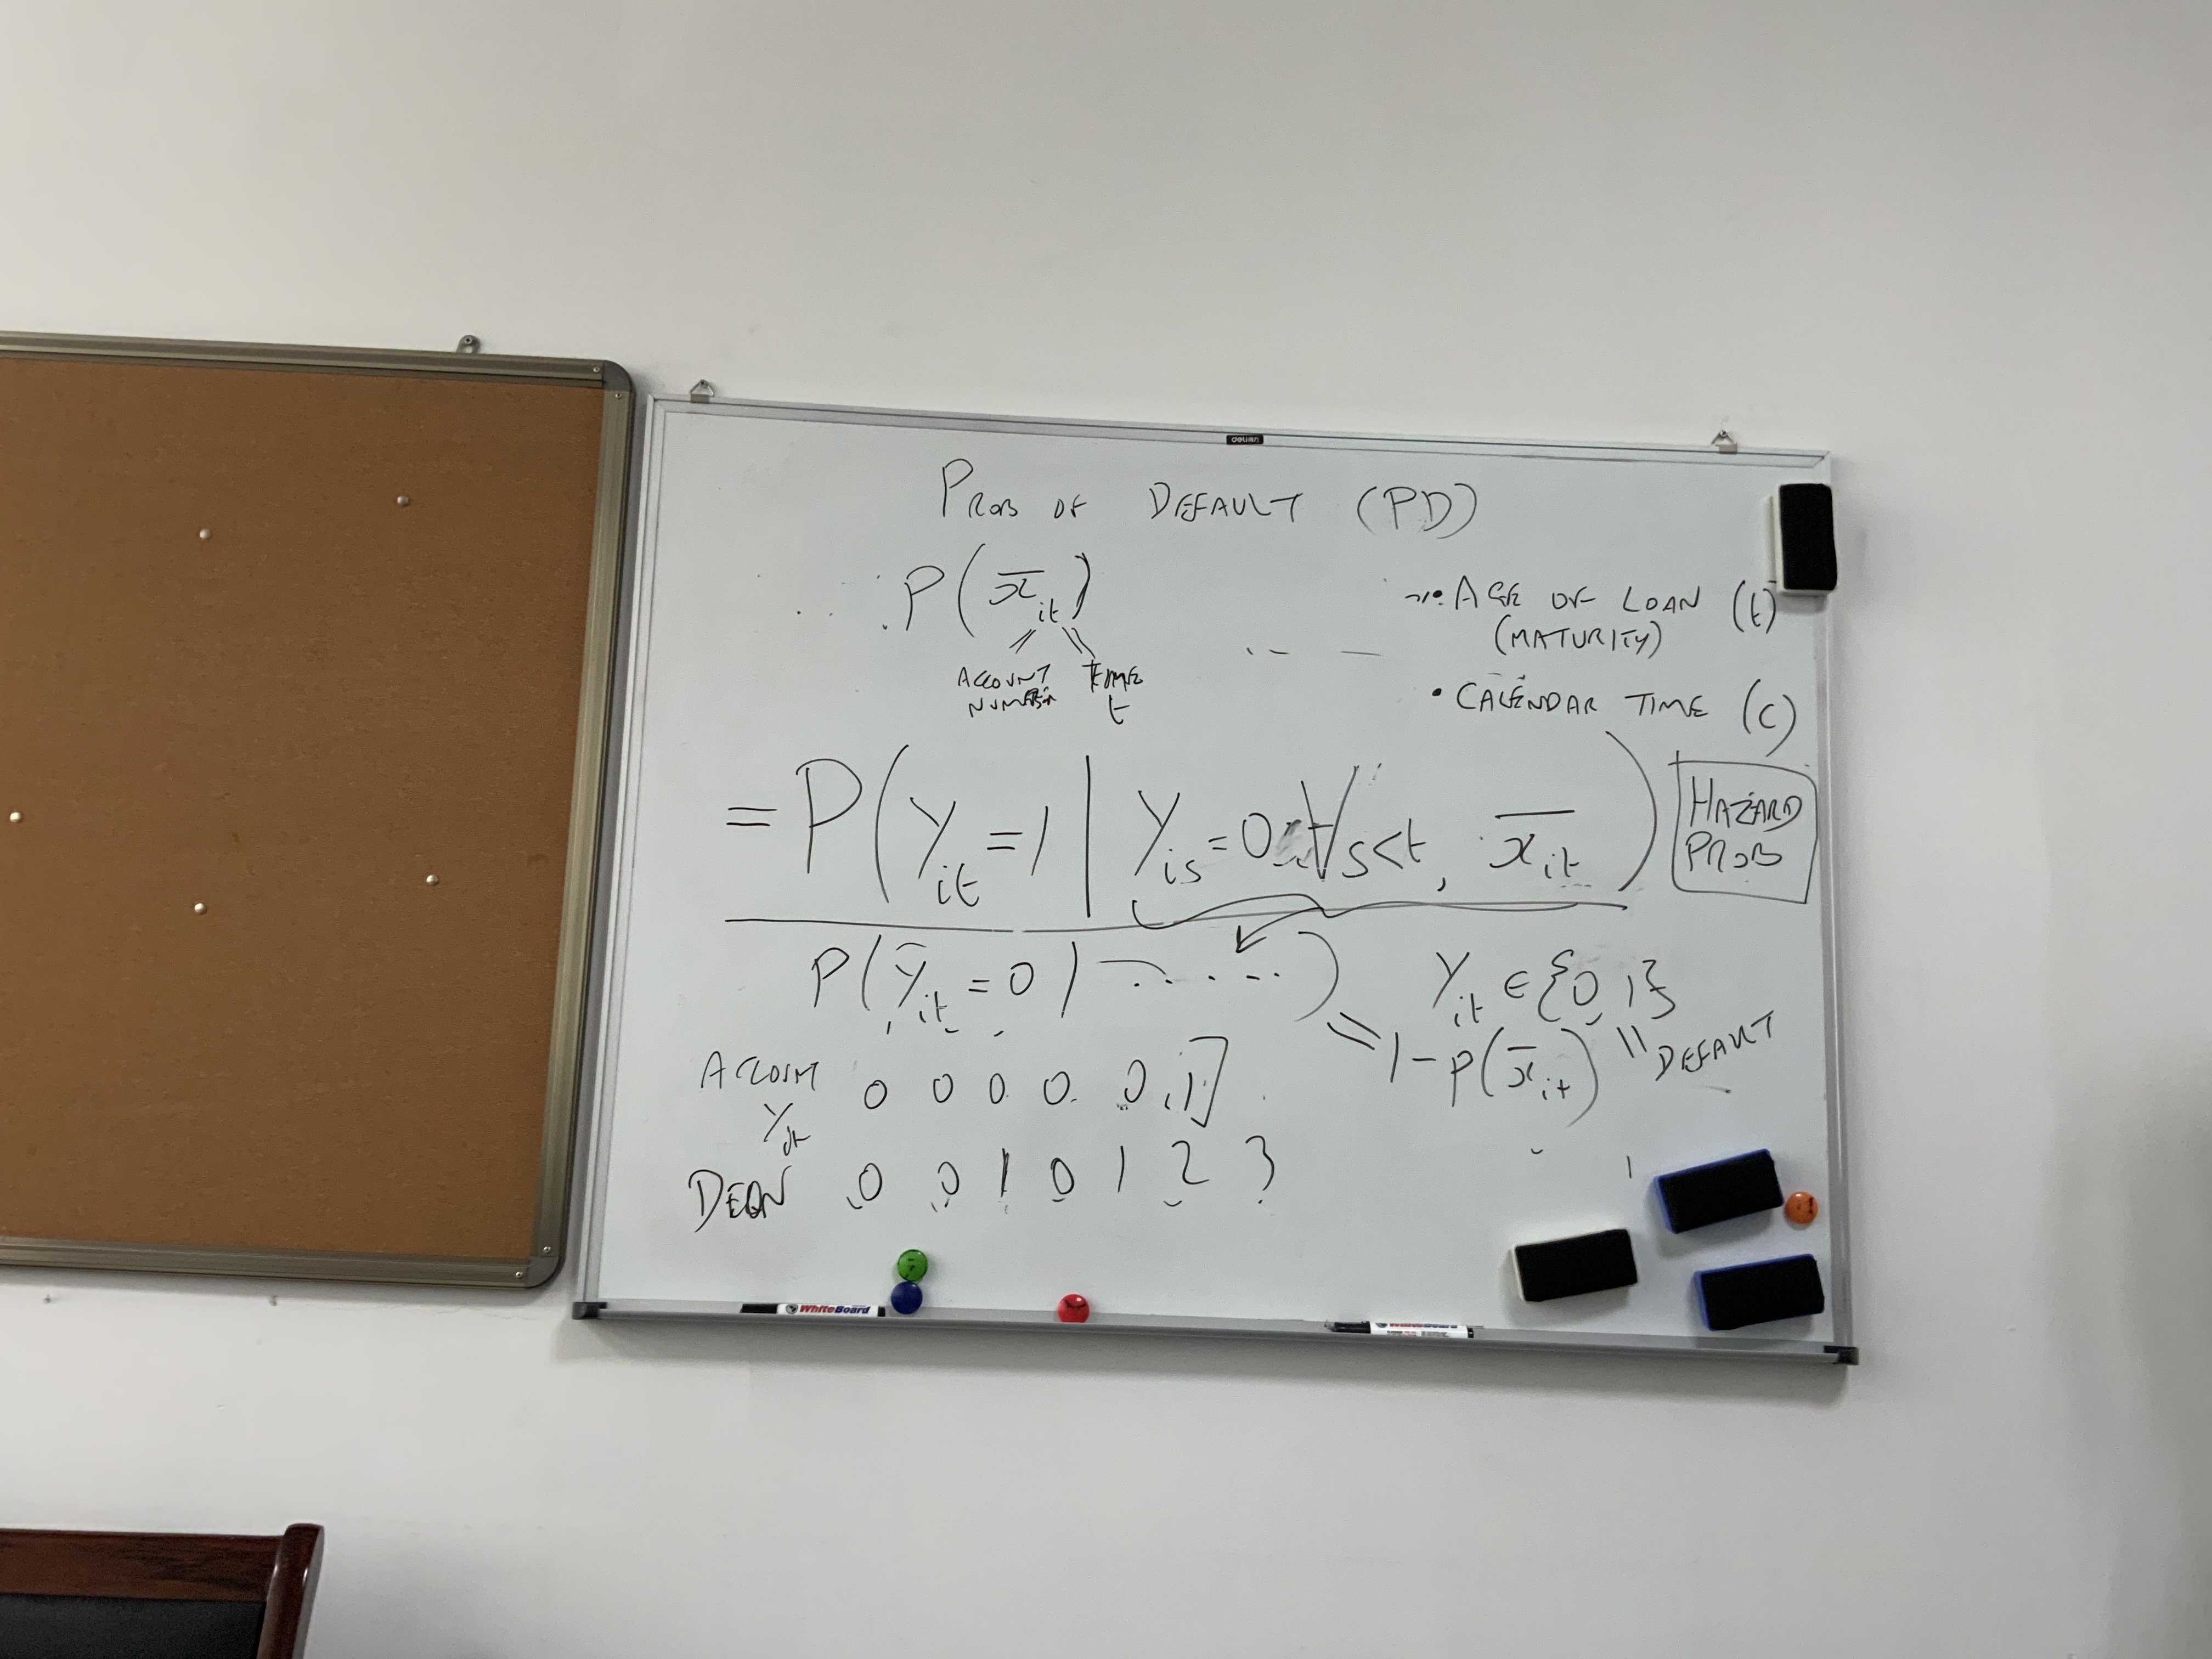 deli
PROB OF DEFAULT (PD)
P(x̄it)
ACCOUNT NUMBER
TIME t
• AGE OF LOAN (t)
(MATURITY)
• CALENDAR TIME (c)
= P(Yit = 1 | Yis = 0 ∀ s<t, x̄it)
HAZARD PROB
P(Yit = 0 | ....) = 1 - P(x̄it)
Yit ∈ {0, 1}
= DEFAULT
ACCOUNT 0 0 0 0 0 1]
Yit
0 0 1 0 1 2 3
WhiteBoard
WhiteBoard